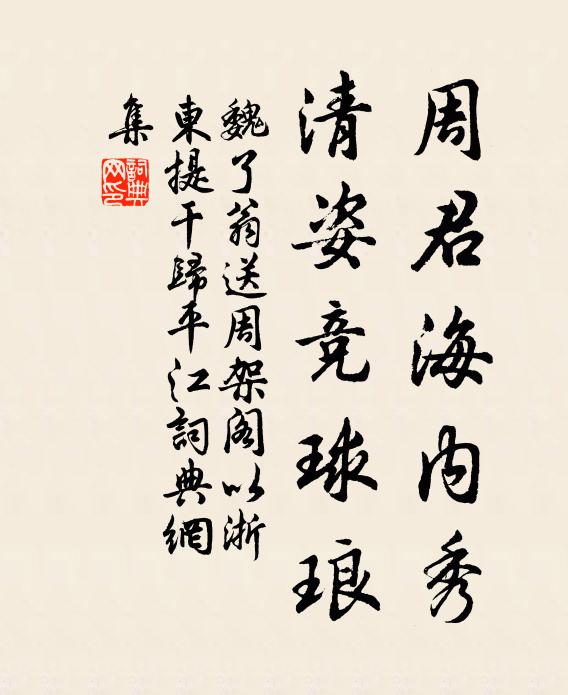 周君海内秀
清姿竞球琅
魏了翁送周架阁以浙
東提干歸平江詞典網
集
詞典
網印